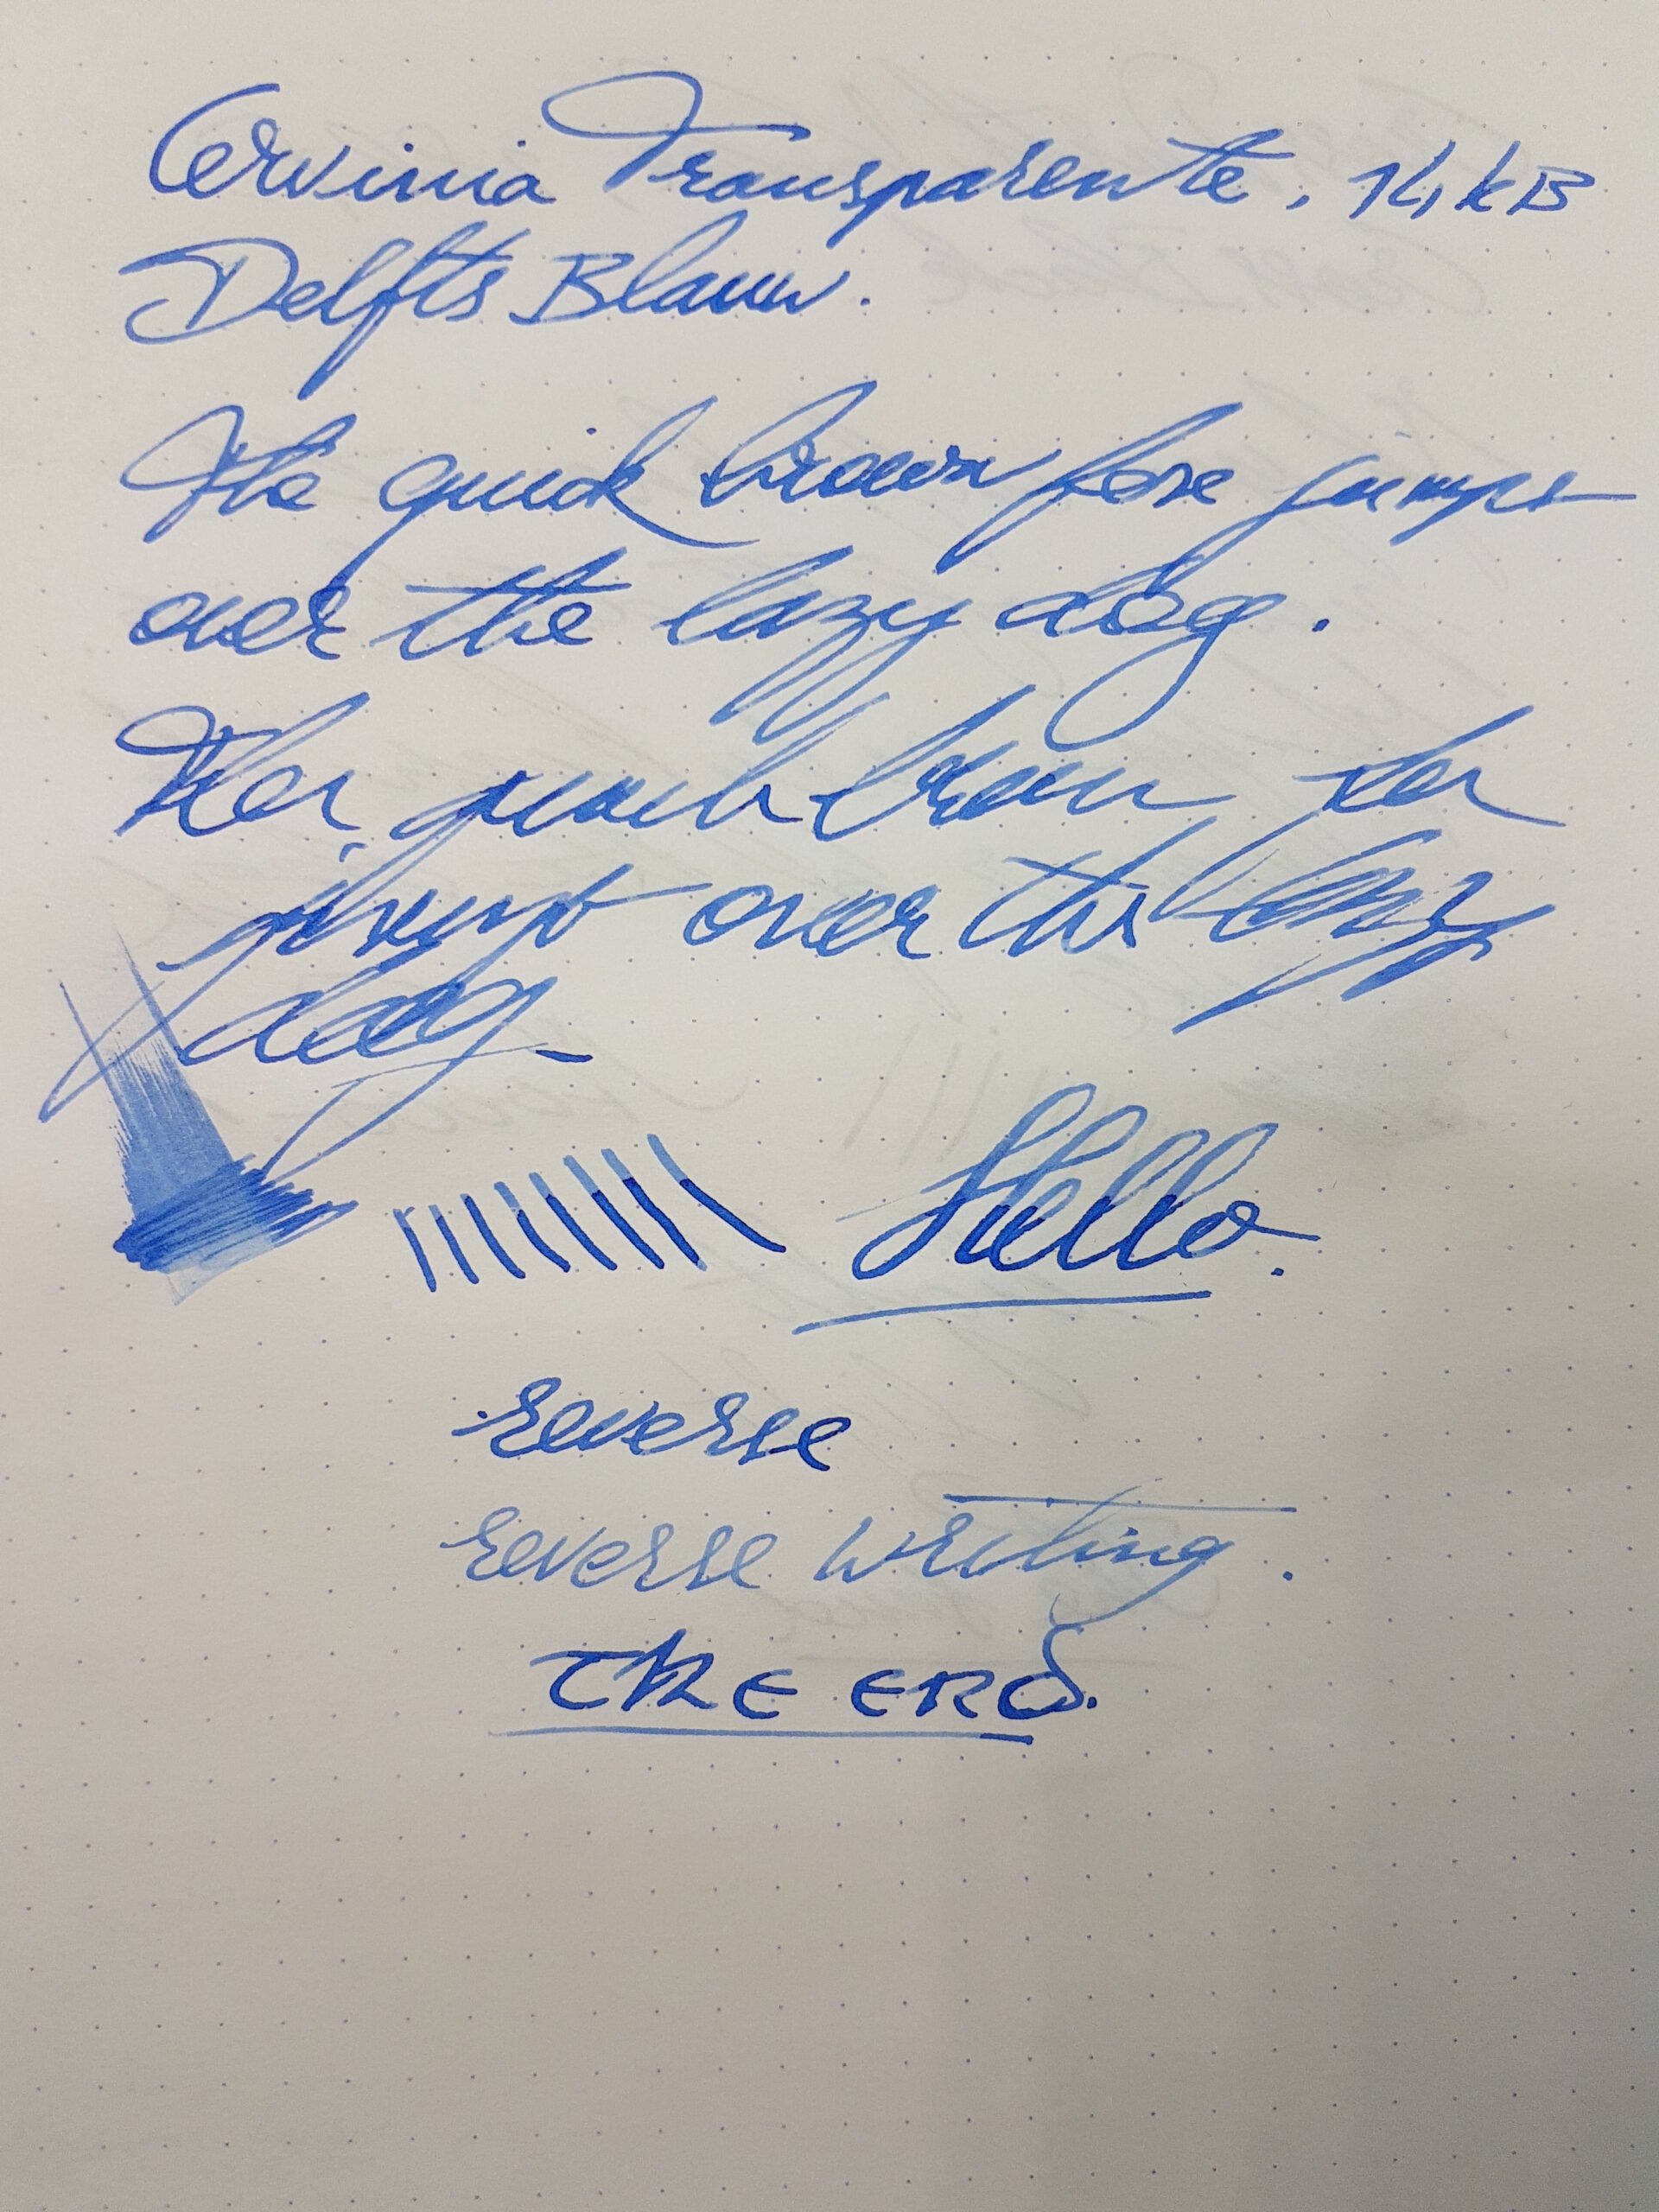 Cervinia Transparente, 14kB
Delfts Blauw.
The quick brown fox jumps
over the lazy dog.
The quick brown fox
jumps over the lazy
dog
Hello.
reverse
reverse writing.
THE END.